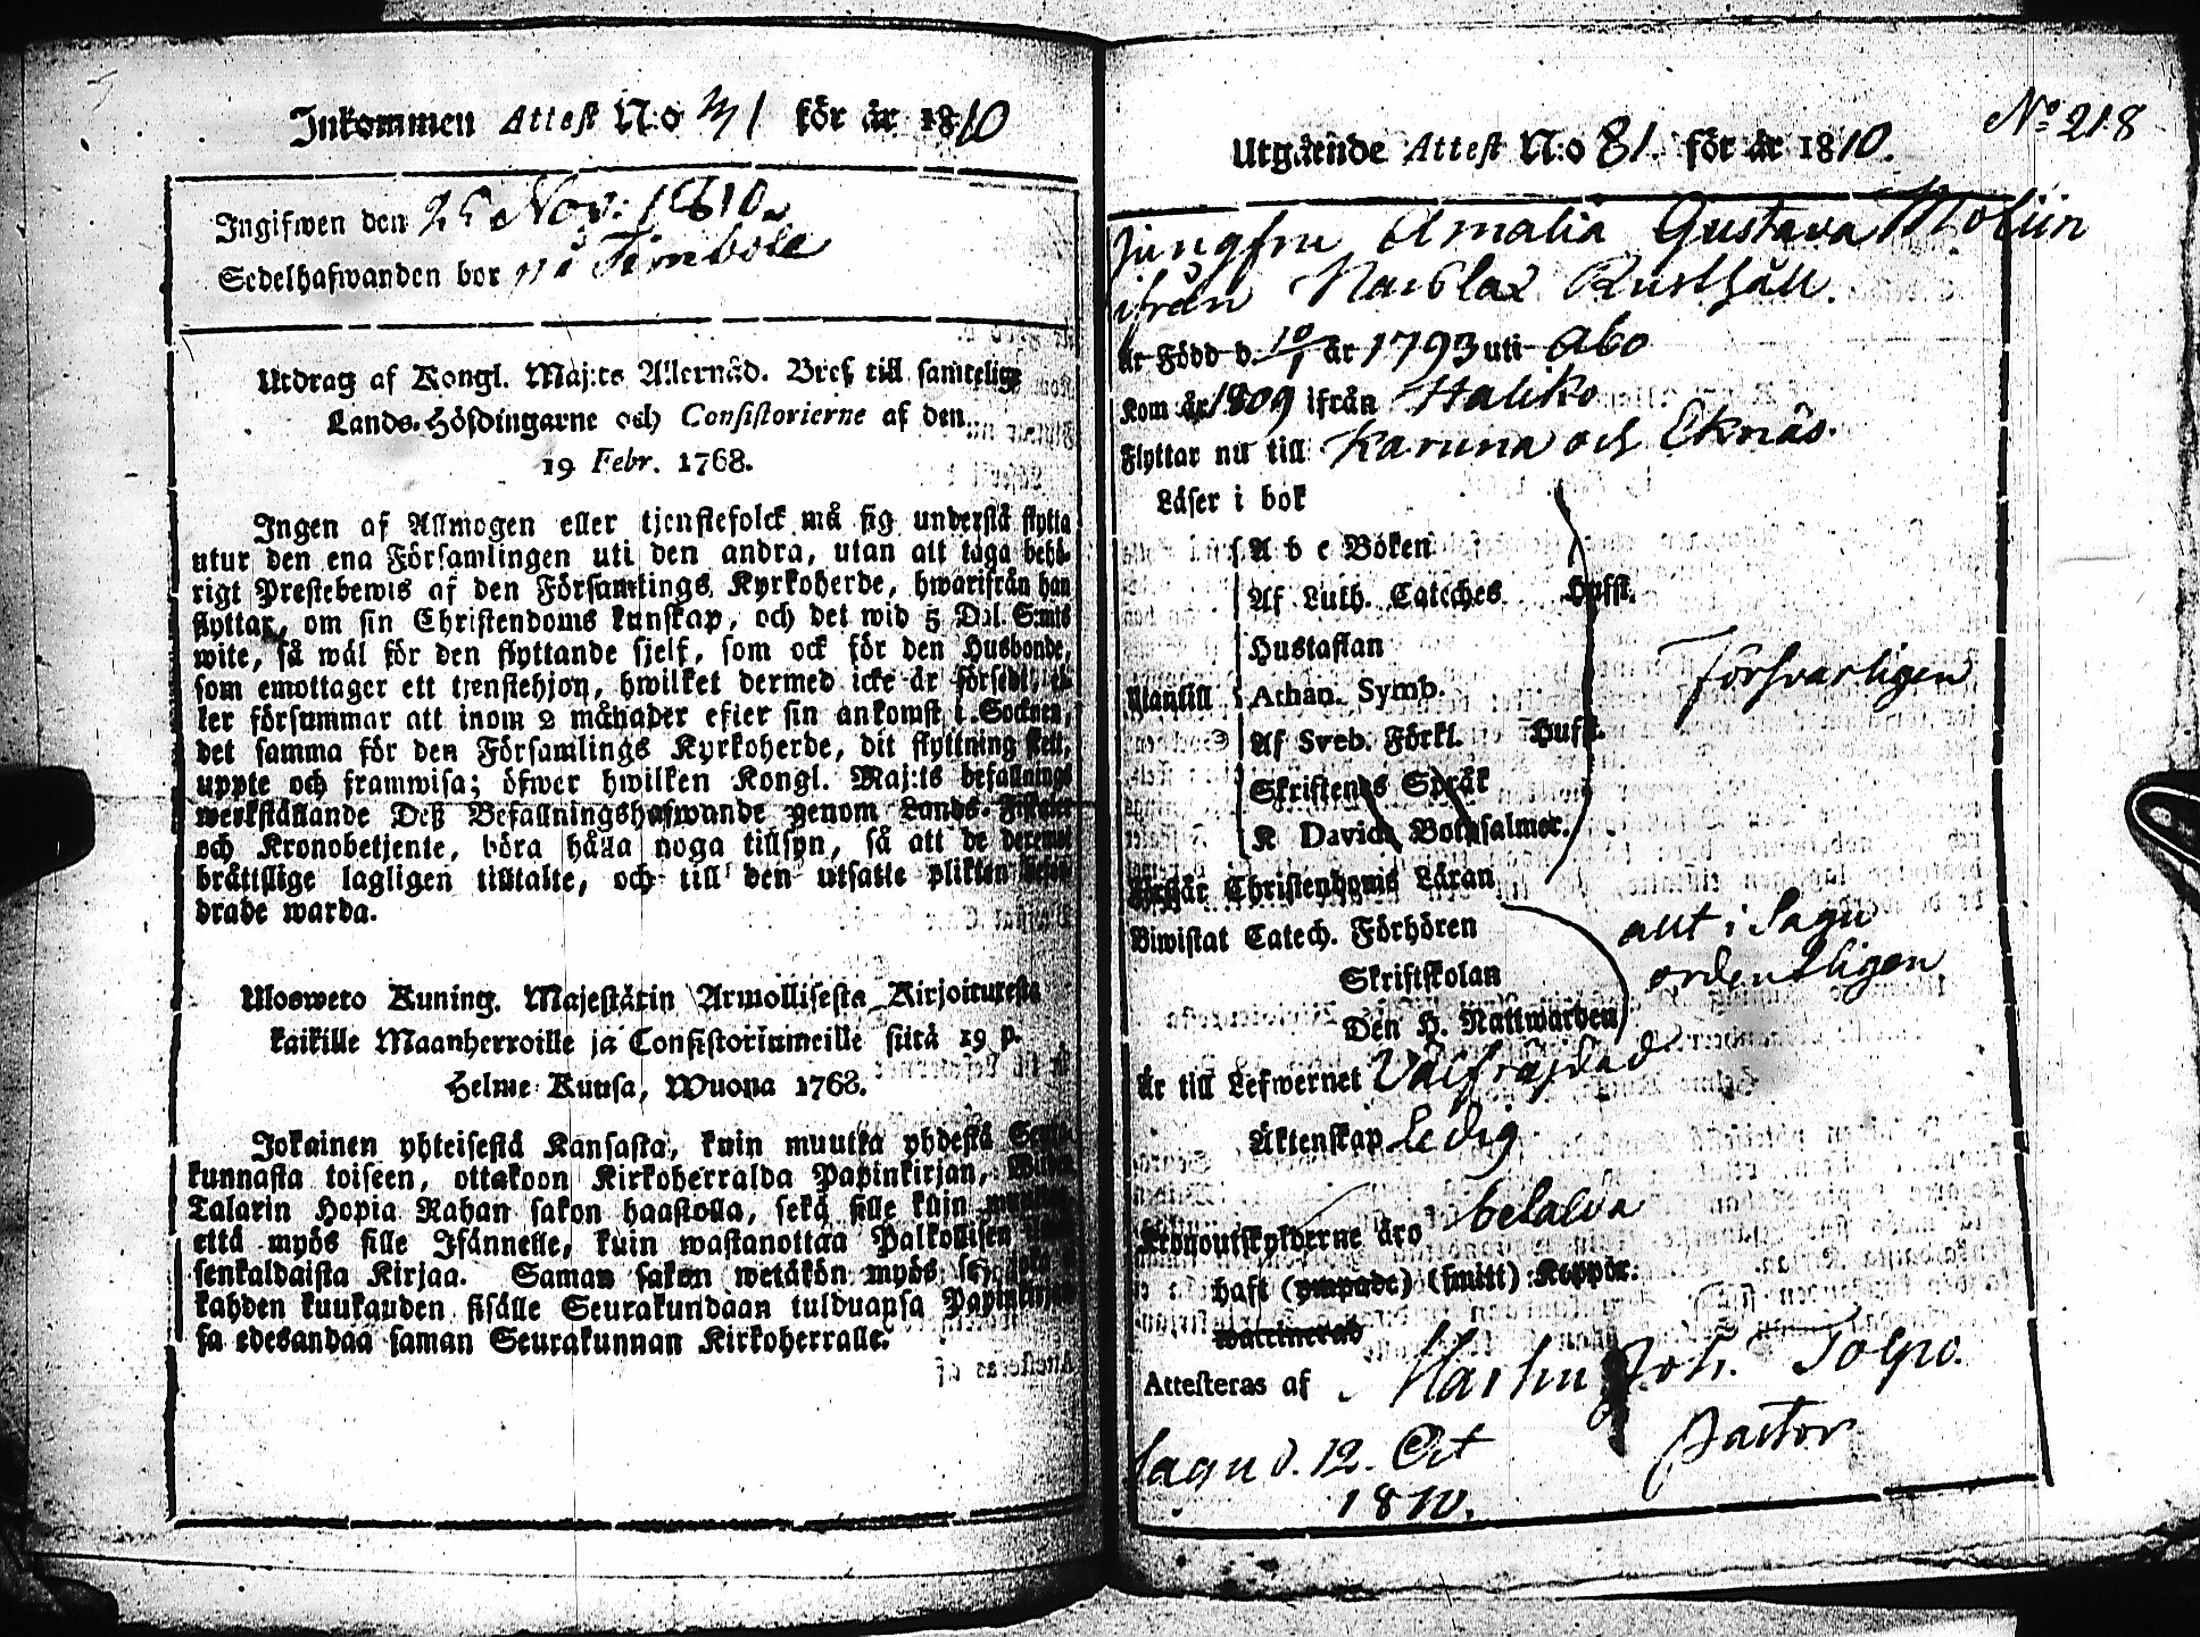 Inkommen Attest N:o 31 för år 1810
Ingifwen den 25 Nov: 1810.
Sedelhafwanden bor på Timbole
Utdrag af Kongl. Maj:ts Allernåd. Bref till samtelige
Lands-Höfdingarne och Consistorierne af den
19 Febr. 1768.
Ingen af Allmogen eller tjenstefolck må sig understå flytta
utur den ena Församlingen uti den andra, utan att taga behö-
rigt Prestebewis af den Församlings Kyrkoherde, hwarifrån han
flyttar, om sin Christendoms kunskap, och det wid 5 Dal. S:mts
wite, så wäl för den flyttande sjelf, som ock för den Husbonde,
som emottager ett tjenstehjon, hwilket dermed icke är försedt, el-
ler försummar att inom 2 månader efter sin ankomst i Socknen,
det samma för den Församlings Kyrkoherde, dit flyttning skett,
uppte och framwisa; öfwer hwilken Kongl. Maj:ts befallnings
werkställande Deß Befallningshafwande genom Lands-Fiskaler
och Kronobetjente, böra hålla noga tillsyn, så att de deremot
bråttslige lagligen tilltalte, och till den utsatte plikten
drade warda.
Ulosweto Kuning. Majestätin Armollisesta Kirjoituresta
kaikille Maanherroille ja Consistoriumeille siitä 19 p.
Helme-Kuusa, Wuona 1768.
Jokainen yhteisestä Kansasta, kuin muutta yhdestä Seura-
kunnasta toiseen, ottakoon Kirkoherralda Papinkirjan, Wiiden
Talarin Hopia Rahan sakon haastolla, sekä sille kuin muuttaa
että myös sille Isännelle, kuin wastanottaa Palkollisen
senkaldaista Kirjaa. Saman sakon wetäkön myös se, joka
kahden kuukauden sisälle Seurakundaan tulduansa Papinkirjan
sa edesandaa saman Seurakunnan Kirkoherralle.
No 218
Utgående Attest N:o 81. för år 1810.
Jungfru Amalia Gustava Moliin
ifrån Rusthåll.
är Född d. 10/1 är 1793 uti Abo
Kom år 1809 ifrån Haliko
Flyttar nu till Karuna och Eknäs.
Läser i bok
A b c Boken
Af Luth. Cateches Hufst.
Hustaflan
Utantill Athan. Symb. Försvarligen
Af Sveb. Förkl. Hufst.
Skriftenes Språk
K Davids Botpsalmer.
Förstår Christendoms Läran
Biwistat Catech. Förhören allt i Sagu
Skriftskolan ordentligen.
Den H. Nattwarden
Är till Lefwernet Välfräjdad
Äktenskap Ledig
Kronoutskylderne äro betalda
haft (ympade) (smitt) Koppor.
waccinerad
Attesteras af Martin Joh. Tolpo.
Pastor
Sagu d. 12. Oct
1810.